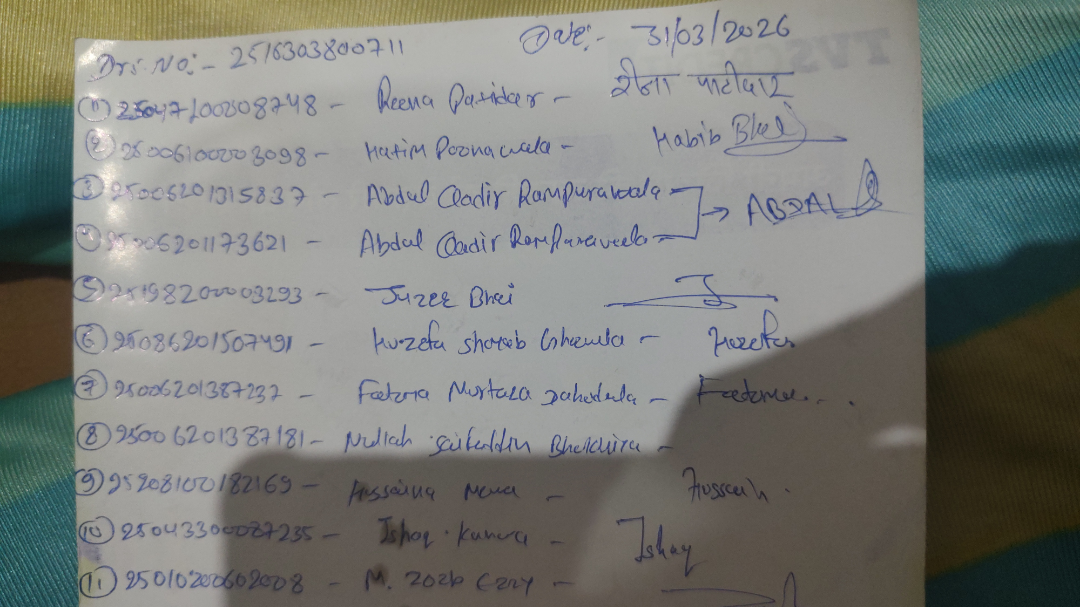 Date:- 31/03/2026
Drs. No:- 2516303800711
① 25047100208748 - Reena Patidar - रीना पाटीदार
② 25006100203098 - Hatim Poonawala - Habib Bhai
③ 25006201315837 - Abdul Qadir Rampurawala
→ ABDAL
④ 25006201173621 - Abdul Qadir Rampurawala
⑤ 25198200003293 - Juzer Bhai
⑥ 25086201507491 - Huzefa - Huzefa
⑦ 25006201387237 - Fatema Murtaza - Fatema
⑧ 25006201387181 - Saifuddin
⑨ 25208100182169 - Hussaina - Hussain.
⑩ 25043300087235 - Ishaq - Ishaq
⑪ 25010200602008 - M.